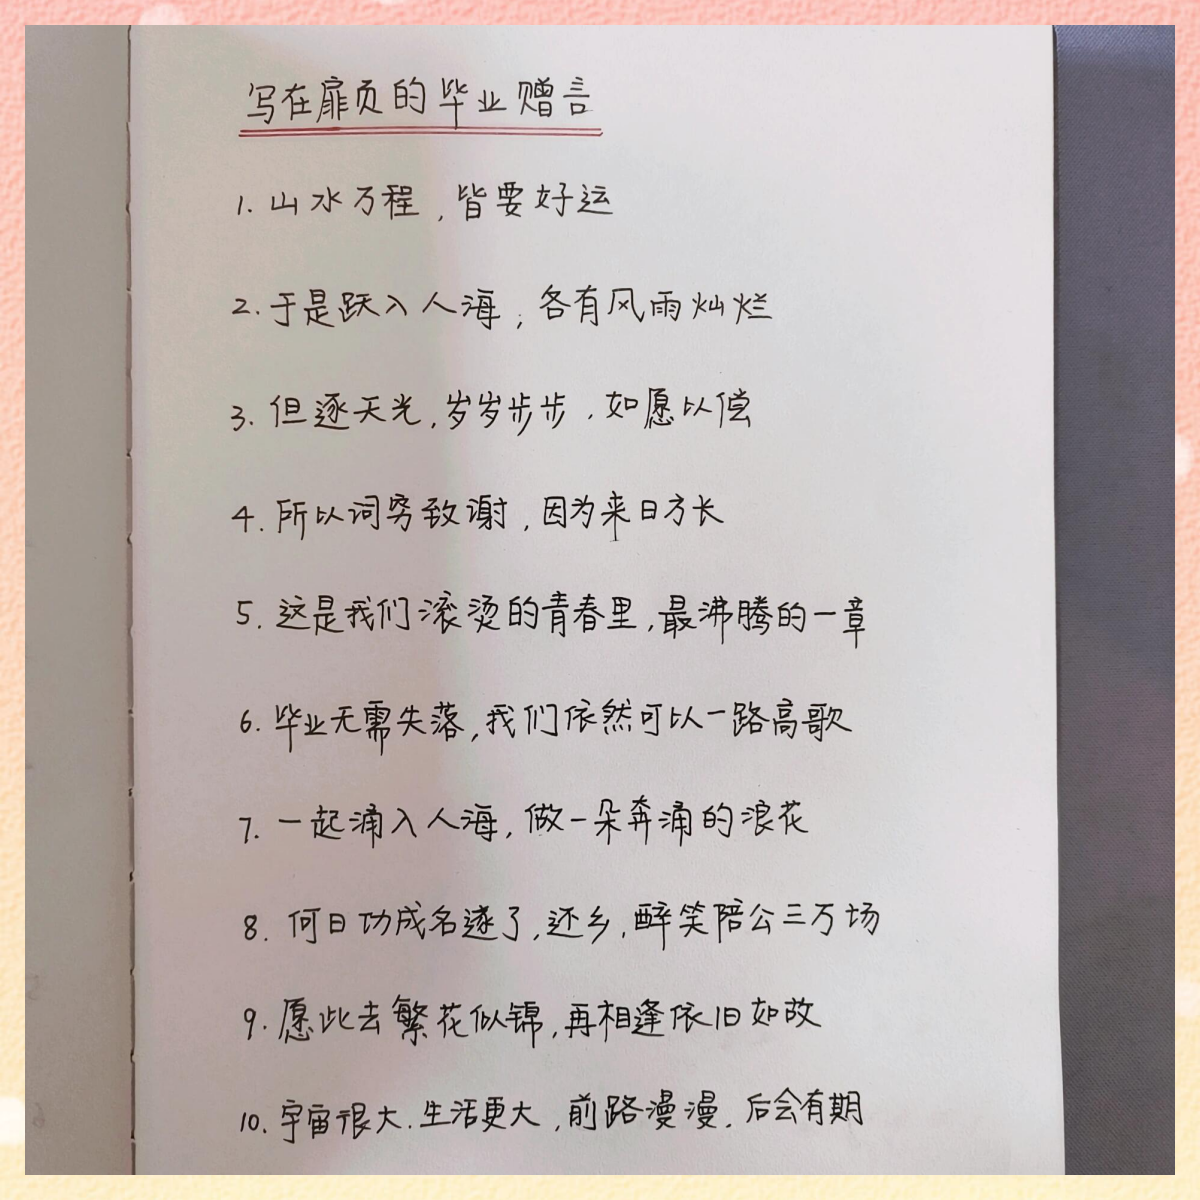 写在扉页的毕业赠言
1. 山水万程,皆要好运
2. 于是跃入人海,各有风雨灿烂
3. 但逐天光,岁岁步步,如愿以偿
4. 所以词穷致谢,因为来日方长
5. 这是我们滚烫的青春里,最沸腾的一章
6. 毕业无需失落,我们依然可以一路高歌
7. 一起涌入人海,做一朵奔涌的浪花
8. 何日功成名遂了,还乡,醉笑陪公三万场
9. 愿此去繁花似锦,再相逢依旧如故
10. 宇宙很大.生活更大,前路漫漫.后会有期